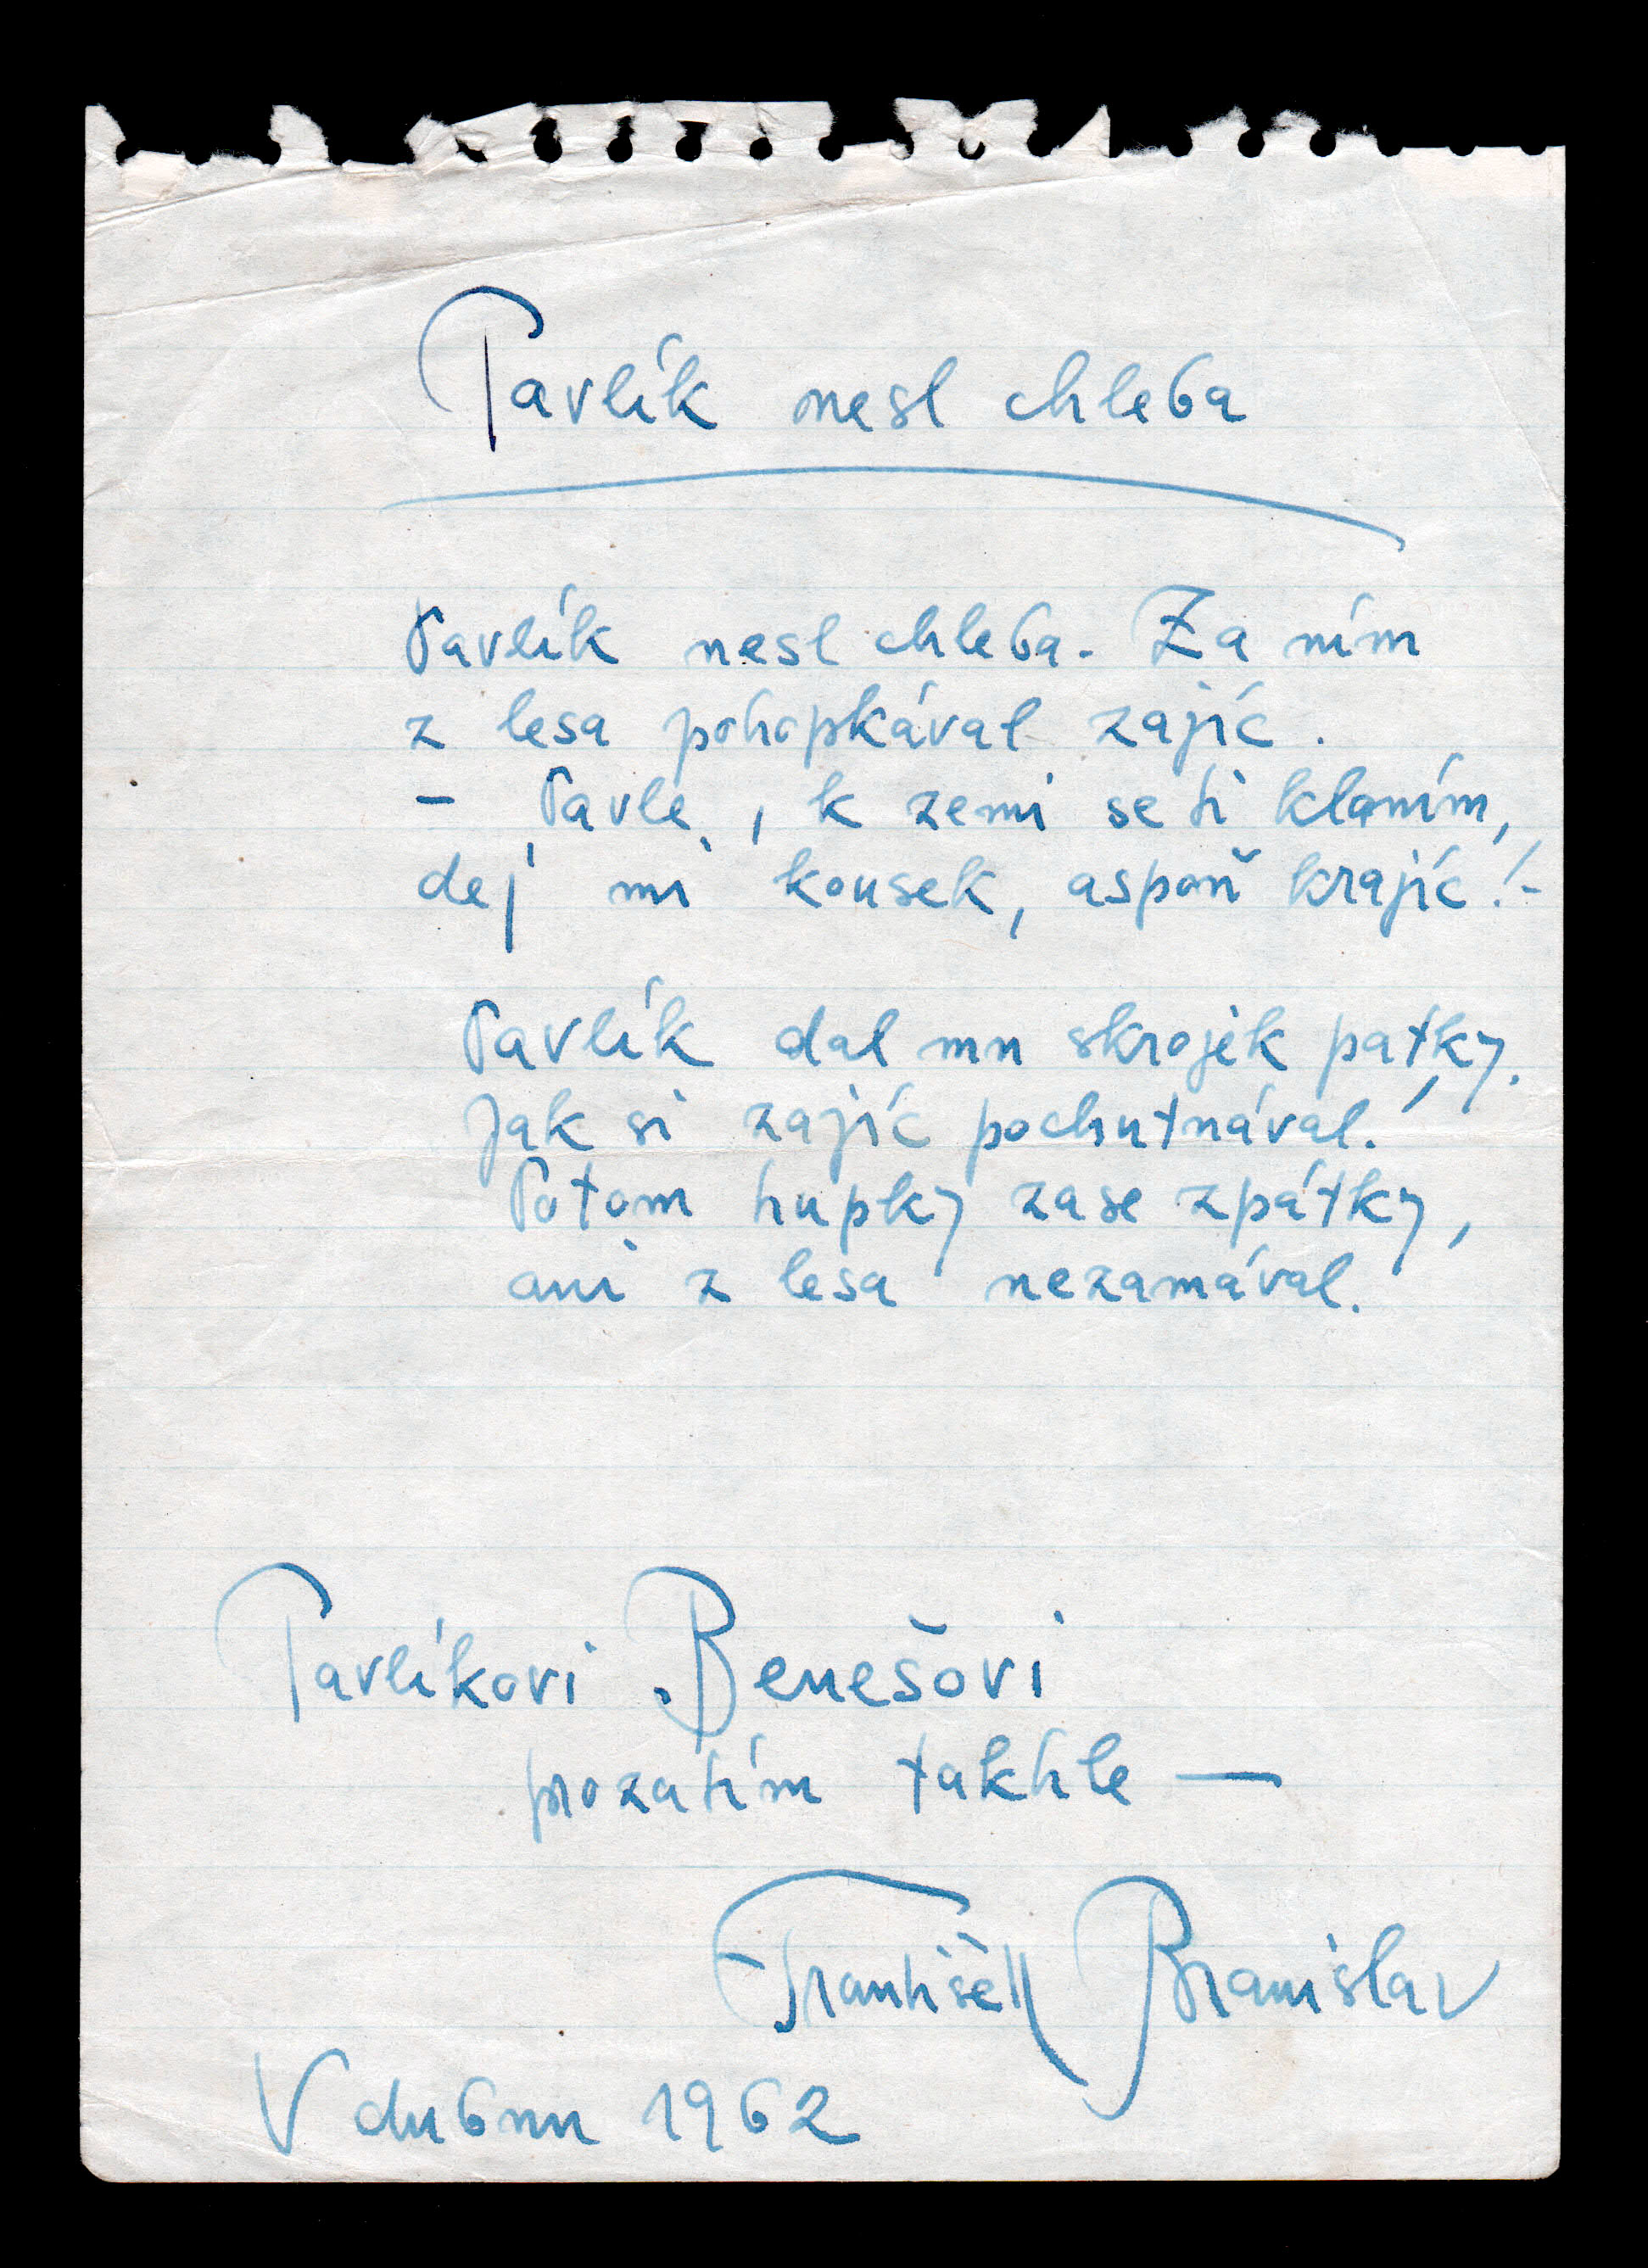 Pavlík nesl chleba
Pavlík nesl chleba. Za ním
z lesa pohopkával zajíc.
– Pavle, k zemi se ti kloním,
dej mi kousek, aspoň krajíc! –
Pavlík dal mu skrojek patky.
Jak si zajíc pochutnával!
Potom hupky zase zpátky,
ani z lesa nezamával.
Pavlíkovi Benešovi
prozatím takhle —
František Branislav
V dubnu 1962